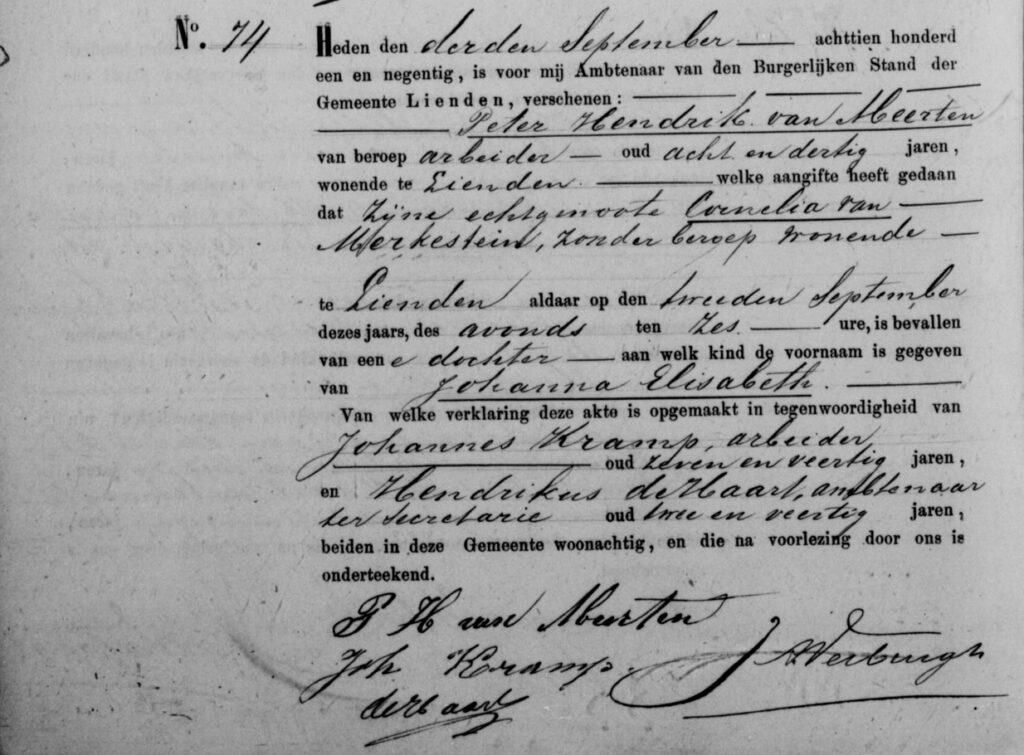 No. 74 Heden den derden September achttien honderd
een en negentig, is voor mij Ambtenaar van den Burgerlijken Stand der
Gemeente Lienden, verschenen:
Peter Hendrik van Meerten
van beroep arbeider oud acht en dertig jaren,
wonende te Lienden welke aangifte heeft gedaan
dat Zijne echtgenoote Cornelia van
Merkestein, zonder beroep wonende
te Lienden aldaar op den tweeden September
dezes jaars, des avonds ten Zes ure, is bevallen
van eene dochter aan welk kind de voornaam is gegeven
van Johanna Elisabeth.
Van welke verklaring deze akte is opgemaakt in tegenwoordigheid van
Johannes Kramp, arbeider
oud zeven en veertig jaren,
en Hendrikus de Haart, ambtenaar
ter secretarie oud twee en veertig jaren,
beiden in deze Gemeente woonachtig, en die na voorlezing door ons is
onderteekend.
P H van Meerten
Joh Kramp
de Haart
Verburgh